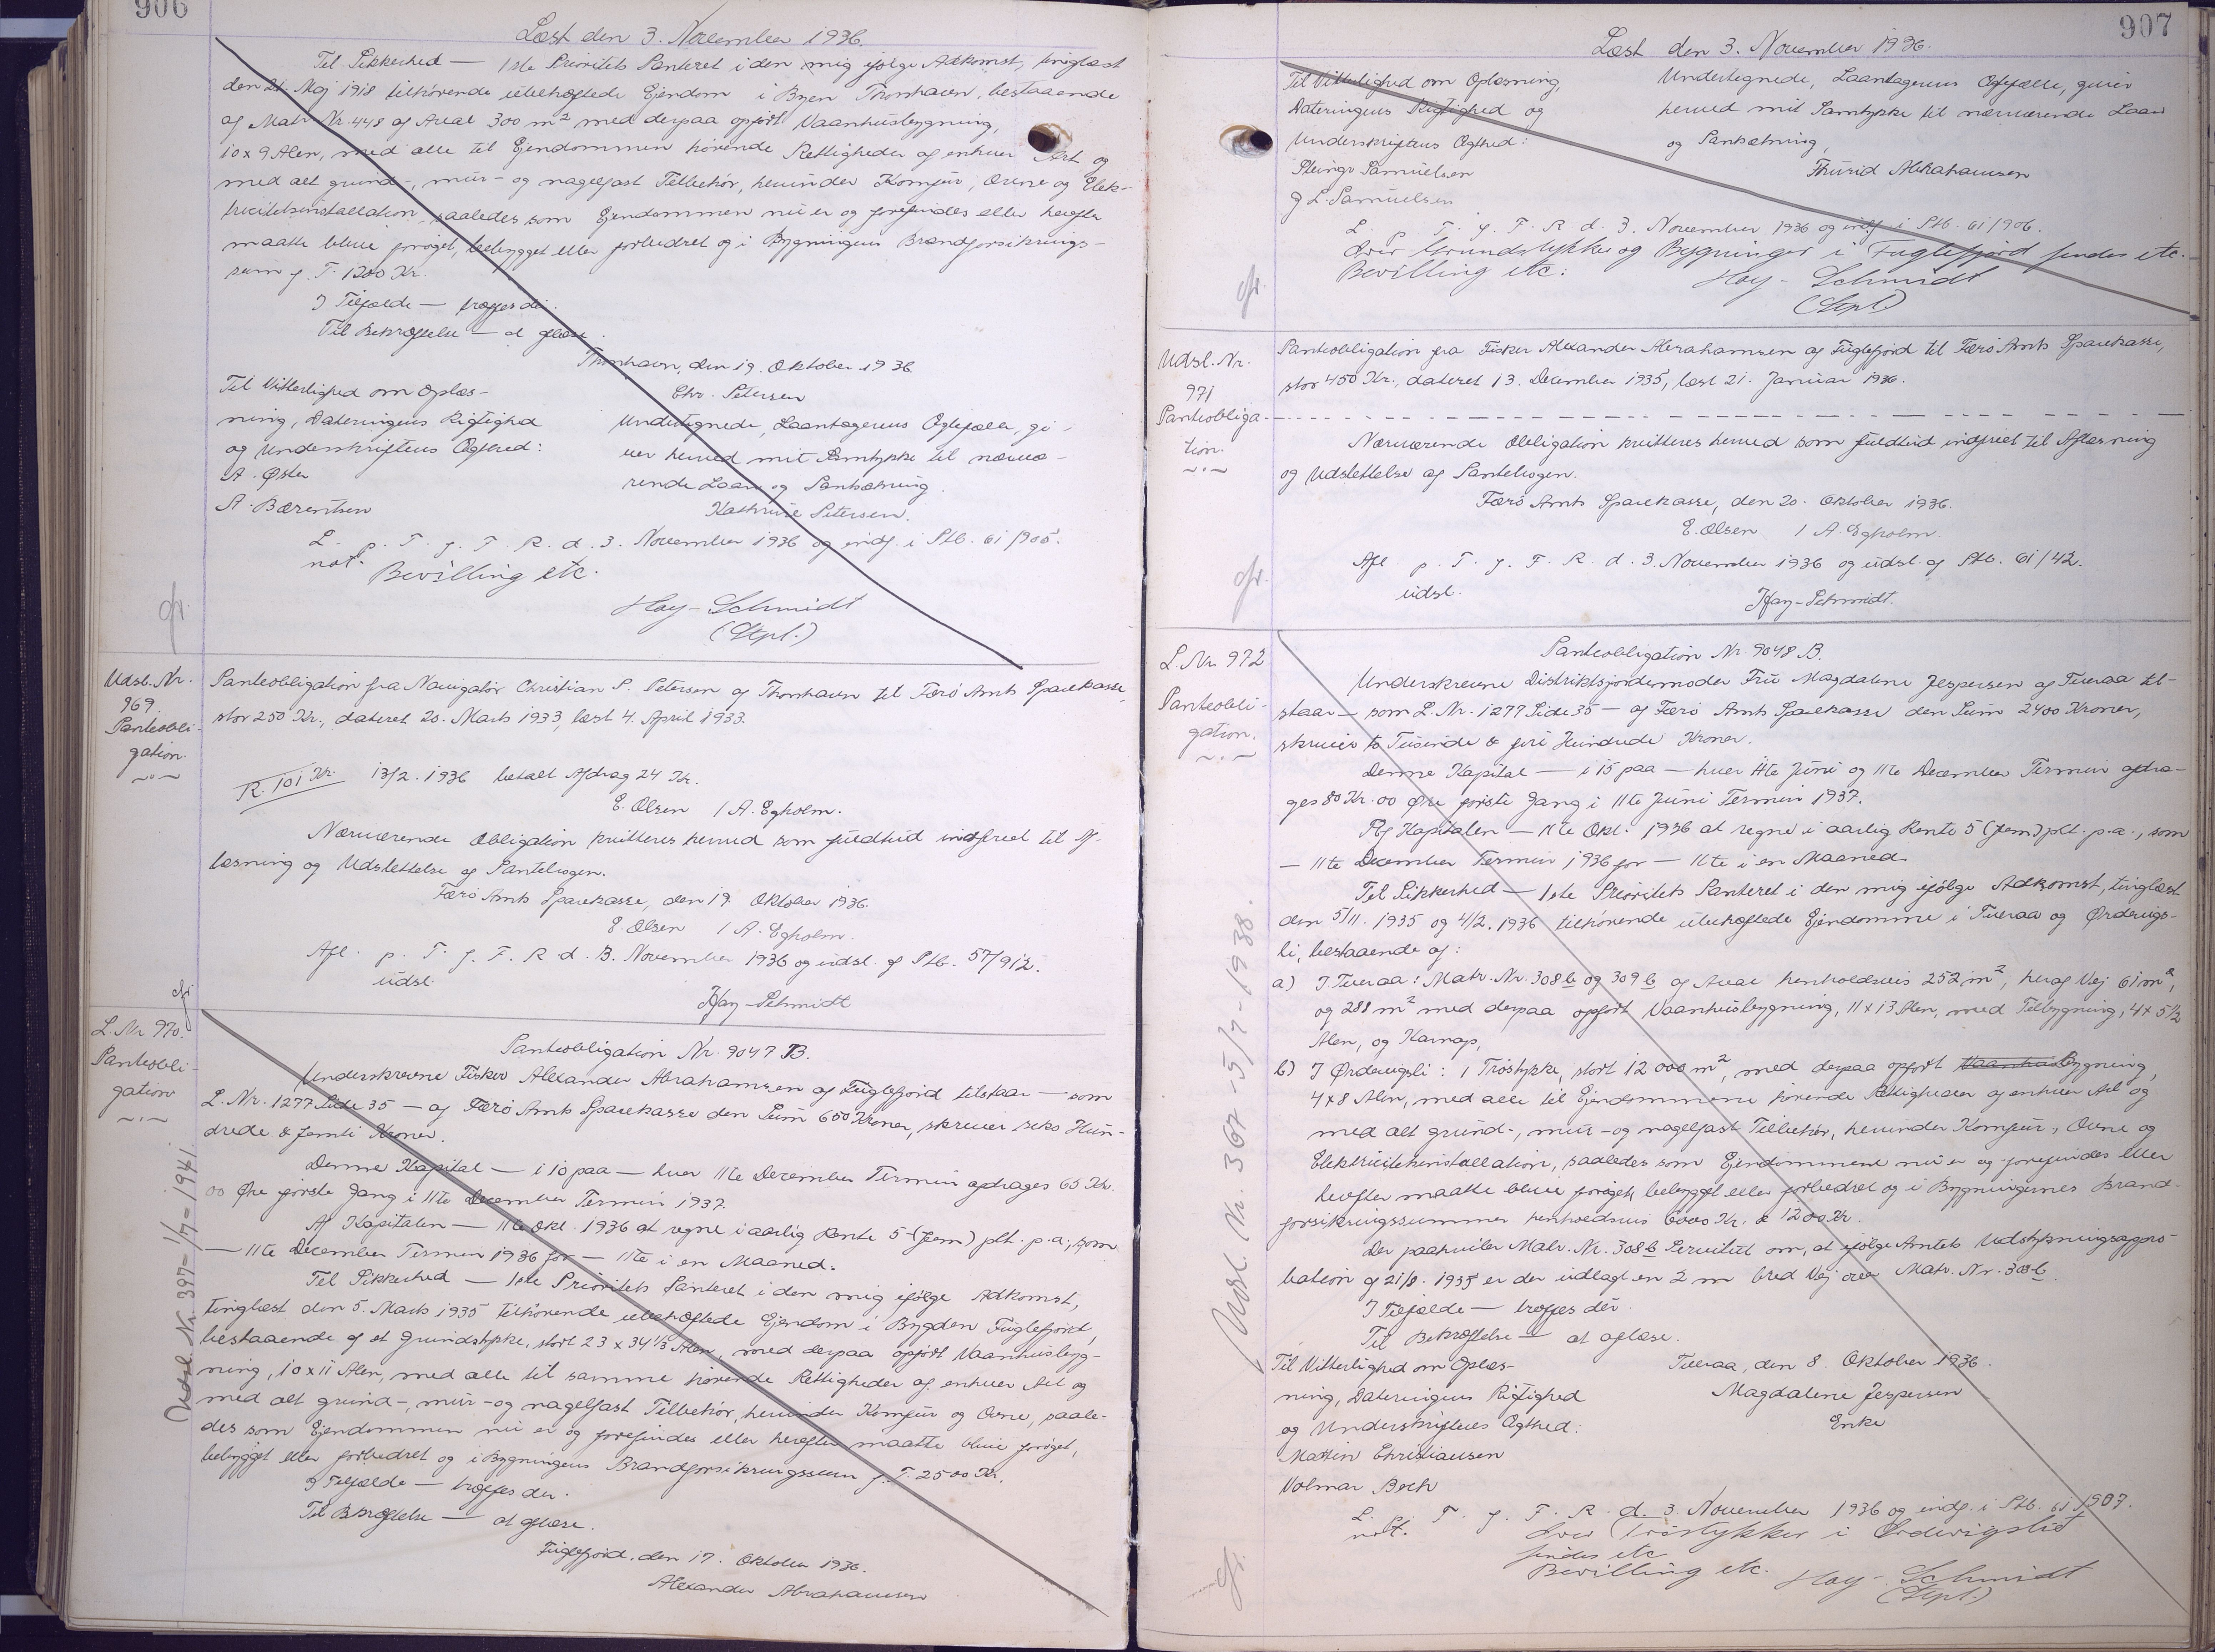 906
Læst den 3. November 1936.
Til Sikkerhed — 1ste Prioritets Panteret i den mig ifølge Adkomst, tinglæst
den 21. Maj 1918 tilhørende ubehæftede Ejendom i Byen Thorshavn, bestaaende
af Matr. Nr. 448 af Areal 300 m² med derpaa opført Vaanhusbygning,
10 x 9 Alen, med alle til Ejendommen hørende Rettigheder af enhver Art og
med alt grund-, mur- og nagelfast Tilbehør, herunder Komfur, Ovne og Elek-
tricitetsinstallation, saaledes som Ejendommen nu er og forefindes eller herefter
maatte blive forøget, bebygget eller forbedret og i Bygningens Brandforsikrings-
sum p. T. 1200 Kr.
I Tilfælde — træffes dér.
Til Bekræftelse — at aflæse.
Thorshavn, den 19. Oktober 1936
Til Vitterlighed om Oplæs-
Chr. Petersen
ning, Dateringens Rigtighed
Undertegnede, Laantagerens Ægtefælle, gi-
og Underskriftens Ægthed:
ver herved mit Samtykke til nærvæ-
A. Øster
rende Laan og Pantsætning.
A. Bærentsen
Kathrine Petersen.
L. p. T. f. F. R. d. 3. November 1936 og indf. i Ptb. 61/905.
not.
Bevilling etc.
Høy-Schmidt
(Stpl.)
cfr.
Udsl. Nr.
969.
Panteobli-
gation.
Panteobligation fra Navigatør Christian P. Petersen af Thorshavn til Færø Amts Sparekasse,
stor 250 Kr., dateret 20. Marts 1933, læst 4. April 1933.
R. 101 Kr. 13/2. 1936 betalt Afdrag 24 Kr.
E. Olsen / A. Egholm.
Nærværende Obligation kvitteres herved som fuldtud indfriet til Af-
læsning og Udslettelse af Pantebogen.
Færø Amts Sparekasse, den 19. Oktober 1936.
E. Olsen / A. Egholm.
Afl. p. T. f. F. R. d. 3. November 1936 og udsl. af Ptb. 57/912.
udsl.
Høy-Schmidt
cfr.
L. Nr. 970.
Panteobli-
gation
Udsl. Nr. 397 - 1/7 - 1941.
Panteobligation Nr. 9047 B.
Underskrevne Fisker Alexander Abrahamsen af Fuglefjord tilstaar — som
L. Nr. 1277 Side 35 — af Færø Amts Sparekasse den Sum 650 Kroner, skriver seks Hun-
drede & femti Kroner.
Denne Kapital — i 10 paa — hver 11te December Termin afdrages 65 Kr.
00 Øre første Gang i 11te December Termin 1937.
Af Kapitalen — 11te Okt. 1936 at regne i aarlig Rente 5 (fem) pCt. p.a., som
— 11te December Termin 1936 for — 11te i en Maaned.
Til Sikkerhed — 1ste Prioritets Panteret i den mig ifølge Adkomst,
tinglæst den 5. Marts 1935 tilhørende ubehæftede Ejendom i Bygden Fuglefjord,
bestaaende af et Grundstykke, stort 23 x 34 1/3 Alen, med derpaa opført Vaanhusbyg-
ning, 10 x 11 Alen, med alle til samme hørende Rettigheder af enhver Art og
med alt grund-, mur- og nagelfast Tilbehør, herunder Komfur og Ovne, saale-
des som Ejendommen nu er og forefindes eller herefter maatte blive forøget,
bebygget eller forbedret og i Bygningens Brandforsikringssum p. T. 2500 Kr.
I Tilfælde — træffes dér.
Til Bekræftelse — at aflæse.
Fuglefjord, den 17. Oktober 1936.
Alexander Abrahamsen
907
Læst den 3. November 1936.
Til Vitterlighed om Oplæsning,
Dateringens Rigtighed og
Underskriftens Ægthed:
Pleingr Samuelsen
J L. Samuelsen
Undertegnede, Laantagerens Ægtefælle, giver
herved mit Samtykke til nærværende Laan
og Pantsætning,
Thurid Abrahamsen
L. p. T. f. F. R. d. 3. November 1936 og indf. i Ptb. 61/906.
Over Grundstykke og Bygninger i Fuglefjord findes etc.
Bevilling etc:
Høy-Schmidt
(Stpl.)
cfr.
Udsl. Nr.
971
Panteobliga-
tion.
Panteobligation fra Fisker Alexander Abrahamsen af Fuglefjord til Færø Amts Sparekasse,
stor 450 Kr., dateret 13. December 1935, læst 21. Januar 1936.
Nærværende Obligation kvitteres herved som fuldtud indfriet til Aflæsning
og Udslettelse af Pantebogen.
Færø Amts Sparekasse, den 20. Oktober 1936.
E. Olsen / A. Egholm.
Afl p. T. f. F. R. d. 3. November 1936 og udsl. af Ptb. 61/42.
udsl.
Høy-Schmidt.
cfr.
L. Nr. 972
Panteobli-
gation.
Udsl. Nr. 367 - 5/7 - 1938.
Panteobligation Nr. 9048 B.
Underskrevne Distriktsjordemoder Fru Magdalene Jespersen af Tveraa til-
staar — som L. Nr. 1277 Side 35 — af Færø Amts Sparekasse den Sum 2400 Kroner,
skriver to Tusinde & fire Hundrede Kroner.
Denne Kapital — i 15 paa — hver 11te Juni og 11te December Termin afdra-
ges 80 Kr. 00 Øre første Gang i 11te Juni Termin 1937.
Af Kapitalen — 11te Okt. 1936 at regne i aarlig Rente 5 (fem) pCt. p.a., som
— 11te December Termin 1936 for — 11te i en Maaned.
Til Sikkerhed — 1ste Prioritets Panteret i den mig ifølge Adkomst, tinglæst
den 5/11. 1935 og 4/2. 1936 tilhørende ubehæftede Ejendomme i Tveraa og Ørdevigs-
li, bestaaende af:
a) I Tveraa: Matr. Nr. 308 b og 309 b af Areal henholdsvis 252 m², heraf Vej 61 m²,
og 288 m² med derpaa opført Vaanhusbygning, 11 x 13 Alen, med Tilbygning, 4 x 5 1/2
Alen, og Karnap,
b) I Ørdevigsli: 1 Trøstykke, stort 12 000 m², med derpaa opført Vaanhusbygning,
4 x 8 Alen, med alle til Ejendommene hørende Rettigheder af enhver Art og
med alt grund-, mur- og nagelfast Tilbehør, herunder Komfur, Ovne og
Elektricitetsinstallation, saaledes som Ejendommene nu er og forefindes eller
herefter maatte blive forøget, bebygget eller forbedret og i Bygningernes Brand-
forsikringssummer henholdsvis 6000 Kr. & 1200 Kr.
Der paahviler Matr. Nr. 308 b Servitut om, at ifølge Amtets Udstykningsappro-
bation af 21/8. 1935 er der udlagt en 2 m bred Vej over Matr. Nr. 308 b.
I Tilfælde — træffes dér.
Til Bekræftelse — at aflæse.
Til Vitterlighed om Oplæs-
Tveraa, den 8. Oktober 1936.
ning, Dateringens Rigtighed
Magdalene Jespersen
og Underskriftens Ægthed:
Enke
Martin Christiansen
Volmar Bech
L. p. T. f. F. R. d. 3 November 1936 og indf. i Ptb. 61/907.
not.
Over Trøstykker i Ørdevigslid
findes etc
Bevilling etc.
Høy-Schmidt
(Stpl.)
cfr.